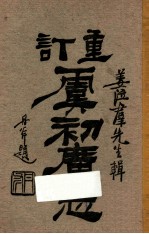 姜泣羣先生輯
重訂
虞初廣志
丹斧題